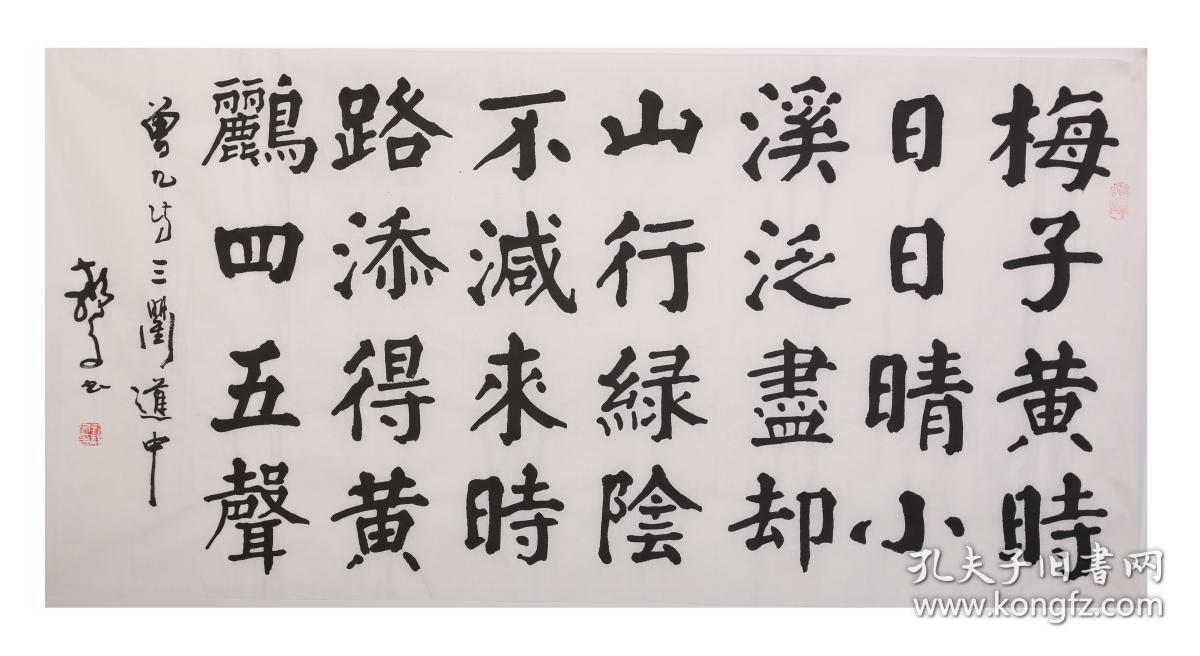 梅子黄時
日日晴小
溪泛盡却
山行緑陰
不減來時
路添得黄
鸝四五聲
曾几诗三衢道中
书
孔夫子旧书网
www.kongfz.com